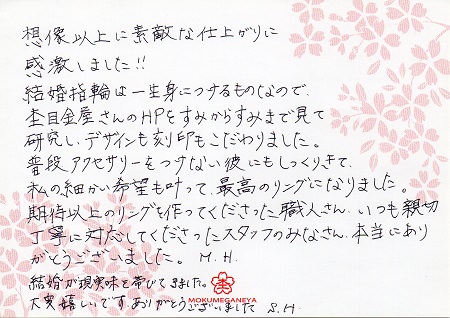 想像以上に素敵な仕上がりに
感激しました!!
結婚指輪は一生身につけるものなので、
杢目金屋さんのHPをすみからすみまで見て
研究し、デザインも刻印もこだわりました。
普段アクセサリーをつけない彼にもしっくりきて、
私の細かい希望も叶って、最高のリングになりました。
期待以上のリングを作ってくださった職人さん、いつも親切
丁寧に対応してくださったスタッフのみなさん、本当にあり
がとうございました。 M.H.
結婚が現実味を帯びてきました。
大変嬉しいです。ありがとうございました S.H
MOKUMEGANEYA